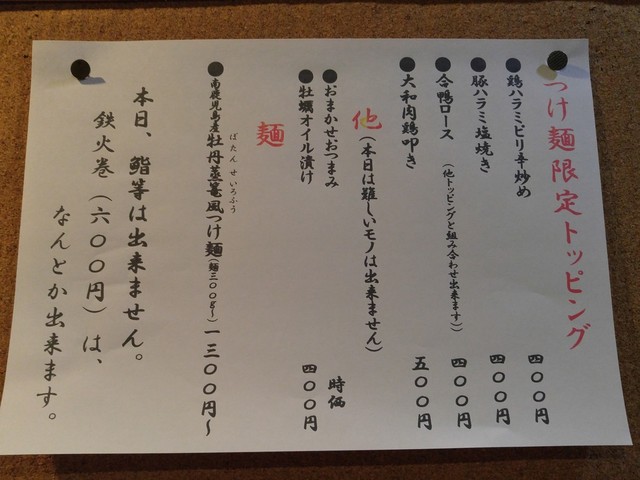 つけ麺限定トッピング
●鶏ハラミピリ辛炒め 四〇〇円
●豚ハラミ塩焼き 四〇〇円
●合鴨ロース (他トッピングと組み合わせ出来ます)) 四〇〇円
●大和肉鶏叩き 五〇〇円
他(本日は難しいモノは出来ません)
●おまかせおつまみ 時価
●牡蠣オイル漬け 四〇〇円
麺
ぼたん せいろふう
●南鹿児島産牡丹蒸篭風つけ麺(麺三〇〇g〜) 一三〇〇円〜
本日、鮨等は出来ません。
鉄火巻(六〇〇円)は、
なんとか出来ます。